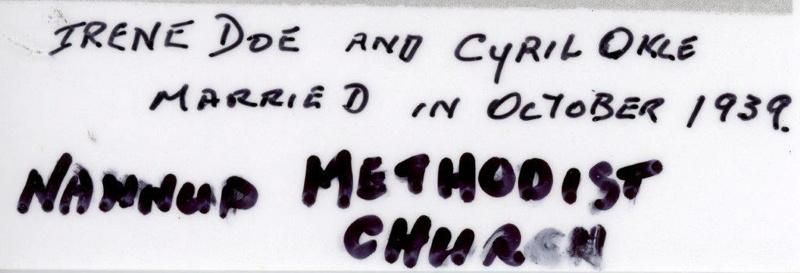 IRENE DOE AND CYRIL OKLE
MARRIED IN OCTOBER 1939.
NANNUP METHODIST
CHURCH